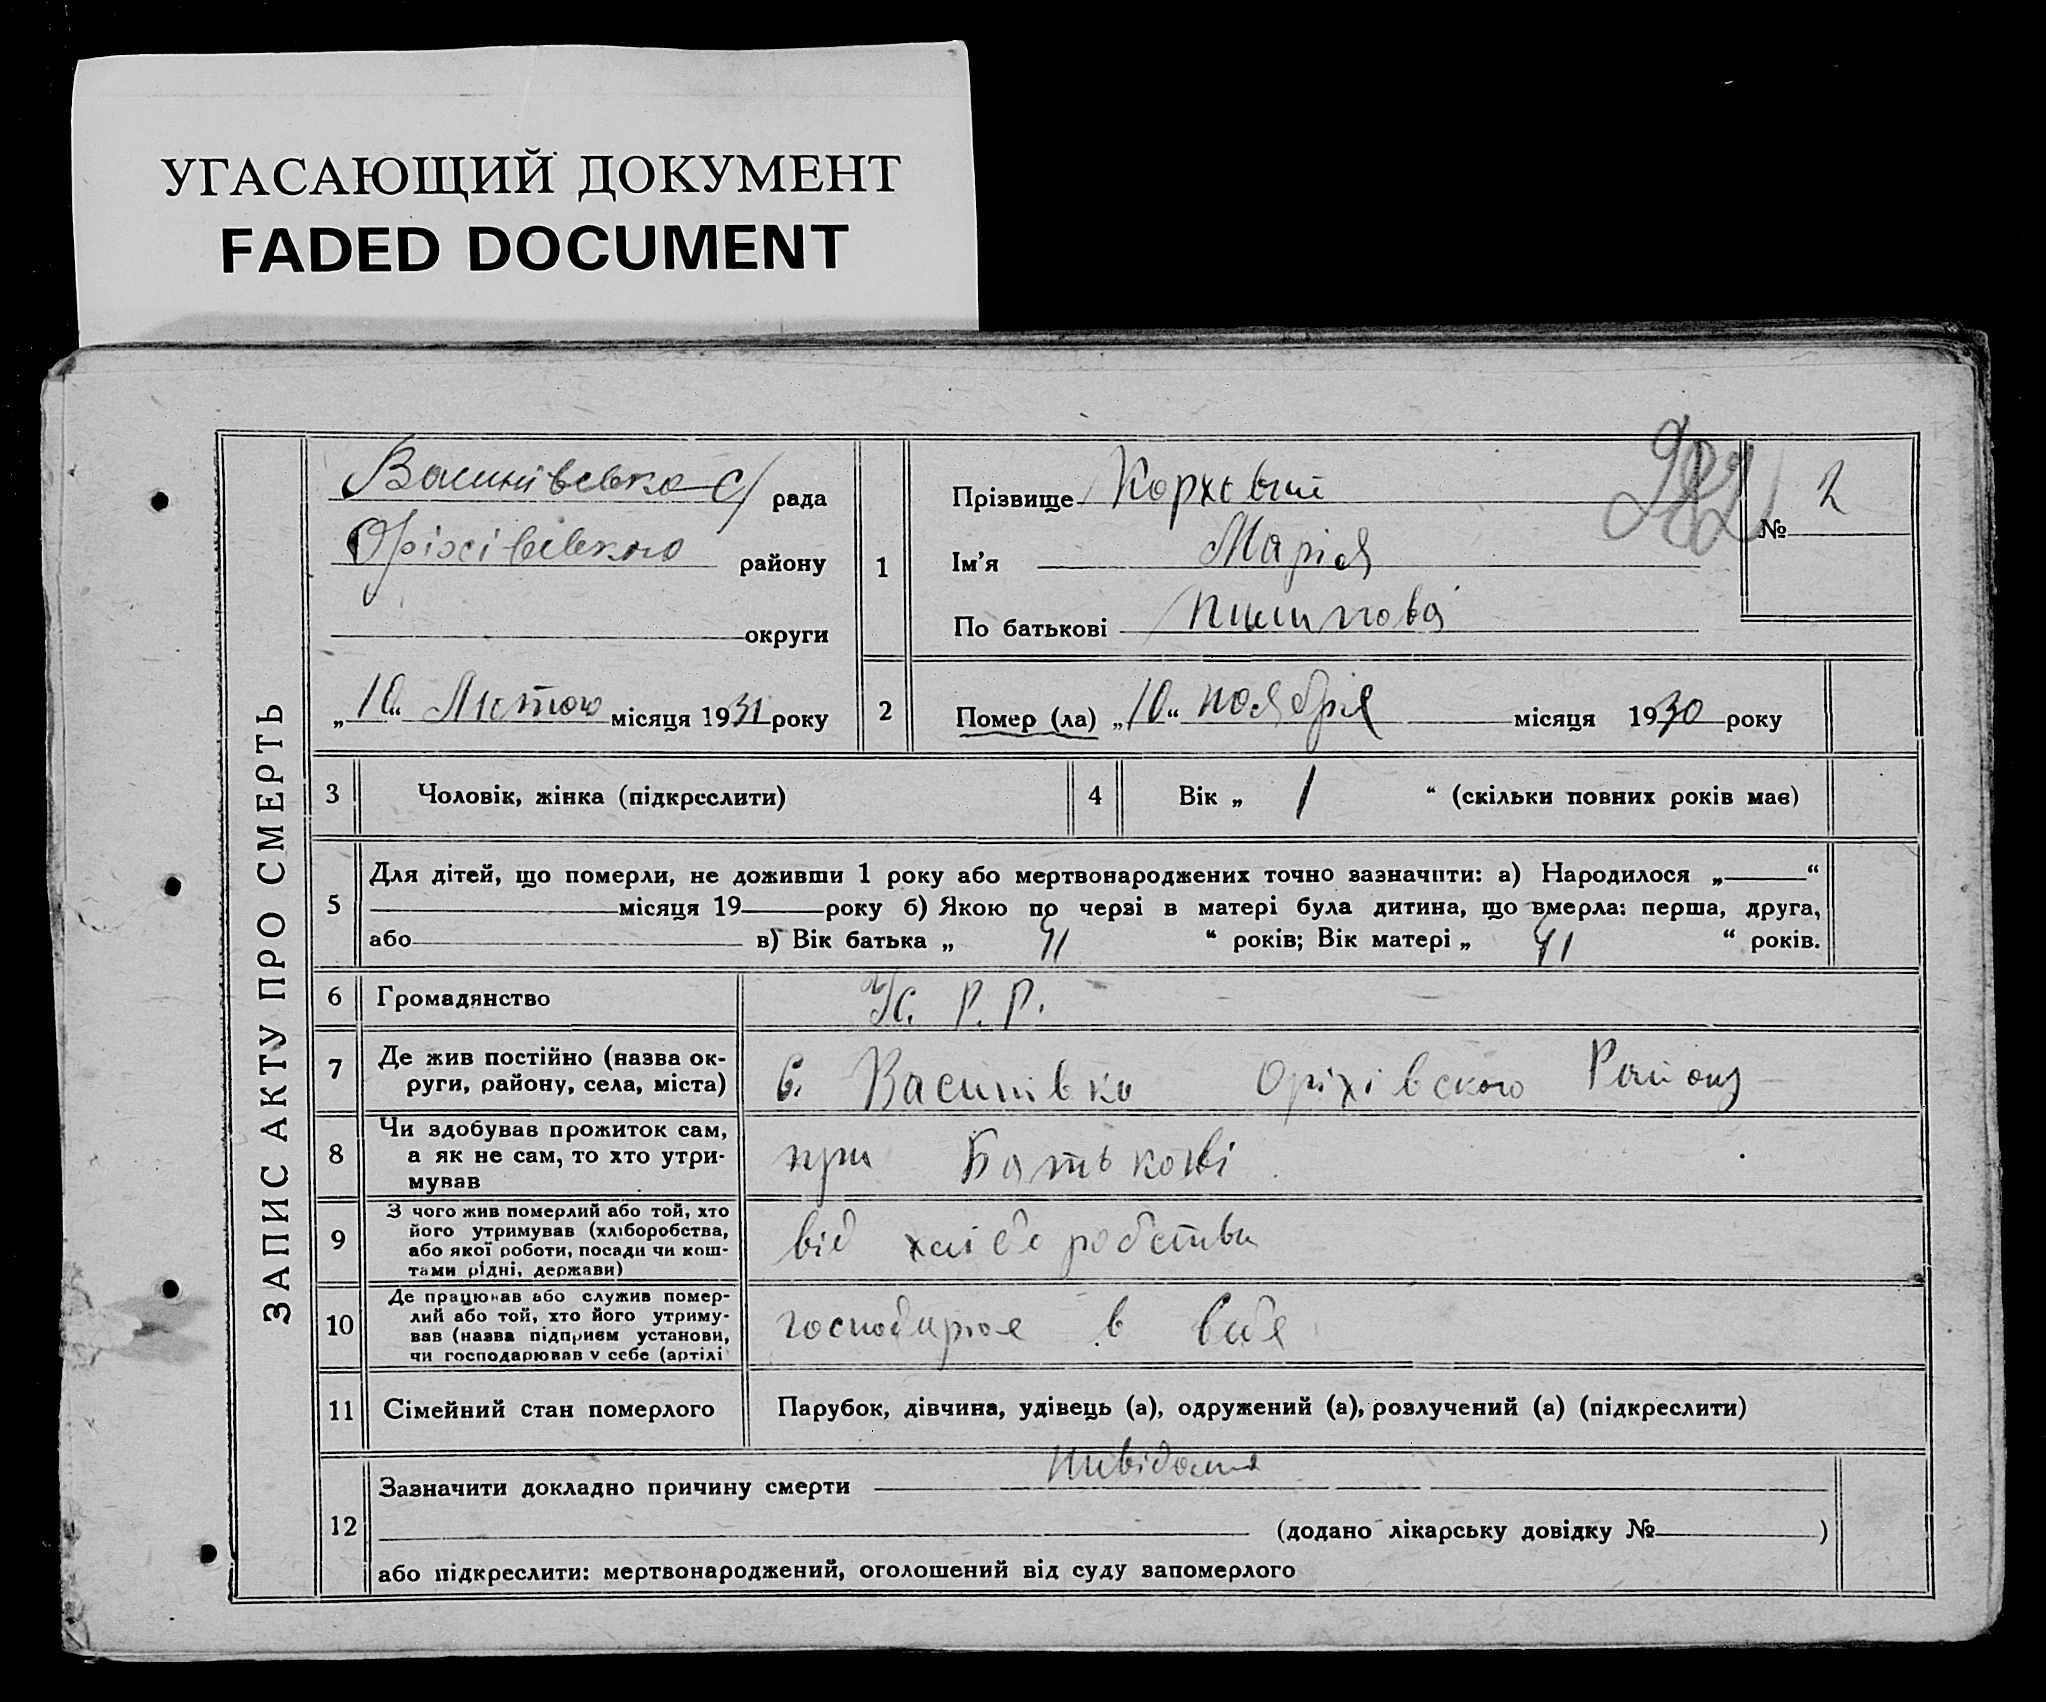 УГАСАЮЩИЙ ДОКУМЕНТ
FADED DOCUMENT
ЗАПИС АКТУ ПРО СМЕРТЬ
с/рада
Оріхівського району
округи
„10“ Лютого місяця 1931 року
№ 2
1 Прізвище
Ім'я Марія
По батькові
2 Помер (ла) „10“ ноября місяця 1930 року
3 Чоловік, жінка (підкреслити)
4 Вік „ 1 “ (скільки повних років має)
5 Для дітей, що померли, не доживши 1 року або мертвонароджених точно зазначити: а) Народилося „ “
місяця 19 року б) Якою по черзі в матері була дитина, що вмерла: перша, друга,
або в) Вік батька „ 41 “ років; Вік матері „ 41 “ років.
6 Громадянство У.С.Р.Р.
7 Де жив постійно (назва ок-
руги, району, села, міста) с. Василівка Оріхівского Району
8 Чи здобував прожиток сам,
а як не сам, то хто утри-
мував при Батькові
9 З чого жив померлий або той, хто
його утримував (хліборобства,
або якої роботи, посади чи кош-
тами рідні, держави) від хліборобства
10 Де працював або служив помер-
лий або той, хто його утриму-
вав (назва підприєм установи,
чи господарював у себе (артілі господарює в себе
11 Сімейний стан померлого Парубок, дівчина, удівець (а), одружений (а), розлучений (а) (підкреслити)
12 Зазначити докладно причину смерти
(додано лікарську довідку № )
або підкреслити: мертвонароджений, оголошений від суду запомерлого